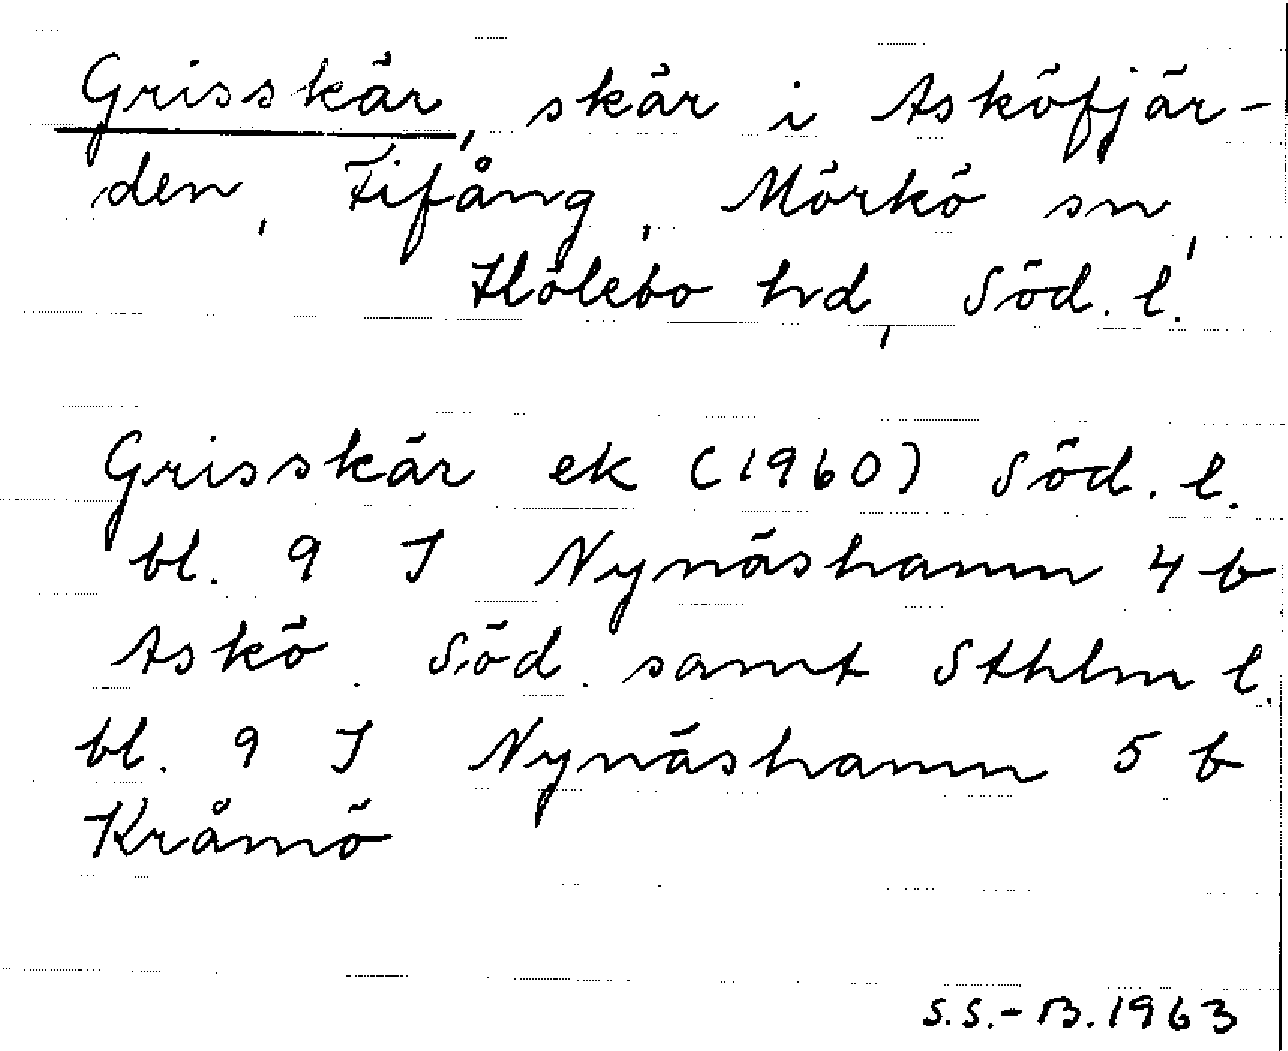 Grisskär, skär i Asköfjär-
den, Fifång, Mörkö sn,
Hölebo hd, Söd. l.
Grisskär ek (1960) Söd. l.
bl. 9 I Nynäshamn 4 b
Askö. Söd. samt Sthlm l.
bl. 9 I Nynäshamn 5 b
Kråmö
S.S.-B. 1963